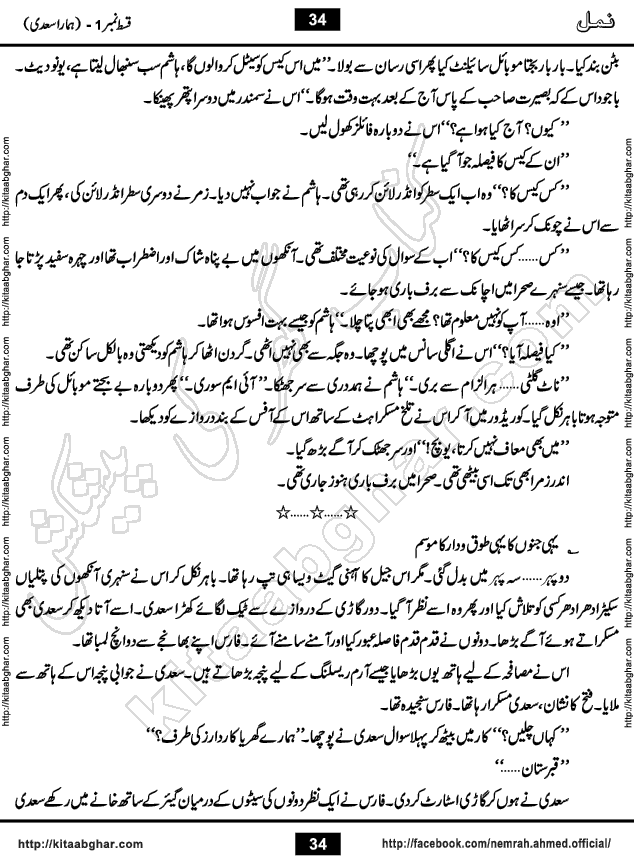 نمل 34 قسط نمبر 1 - (ہمارا سعدی)
بٹن بند کیا۔ بار بار بجتا موبائل سائیلنٹ کیا پھر اسی رسان سے بولا۔ ’’میں اس کیس کو سیٹل کروالوں گا، ہاشم سب سنبھال لیتا ہے، یونو دیٹ۔
باجود اس کے کہ بصیرت صاحب کے پاس آج کے بعد بہت وقت ہوگا۔‘‘ اس نے سمندر میں دوسرا پتھر پھینکا۔
’’کیوں؟ آج کیا ہوا ہے؟‘‘ اس نے دوبارہ فائلز کھول لیں۔
’’ان کے کیس کا فیصلہ جو آ گیا ہے۔‘‘
’’کس کیس کا؟‘‘ وہ اب ایک سطر کو انڈر لائن کر رہی تھی۔ ہاشم نے جواب نہیں دیا۔ زمر نے دوسری سطر انڈر لائن کی، پھر ایک دم
سے اس نے چونک کر سر اٹھایا۔
’’کس......کس کیس کا؟‘‘ اب کے سوال کی نوعیت مختلف تھی۔ آنکھوں میں بے پناہ شاک اور اضطراب تھا اور چہرہ سفید پڑتا جا
رہا تھا۔ جیسے سنہرے صحرا میں اچانک سے برف باری ہو جائے۔
’’اوہ......آپ کو نہیں معلوم تھا؟ مجھے بھی ابھی پتا چلا۔‘‘ ہاشم کو جیسے بہت افسوس ہوا تھا۔
’’کیا فیصلہ آیا؟‘‘ اس نے اگلی سانس میں پوچھا۔ وہ جگہ سے بھی نہیں اٹھی۔ گردن اٹھا کر ہاشم کو دیکھتی وہ بالکل ساکن تھی۔
’’ناٹ گلٹی...... ہر الزام سے بری۔‘‘ ہاشم نے ہمدردی سے سر جھٹکا۔ ’’آئی ایم سوری۔‘‘ پھر دوبارہ بے بجتے موبائل کی طرف
متوجہ ہوتا باہر نکل گیا۔ کوریڈور میں آ کر اس نے تلخ مسکراہٹ کے ساتھ اس کے آفس کے بند دروازے کو دیکھا۔
’’میں بھی معاف نہیں کرتا، یو بچ!‘‘ اور سر جھٹک کر آگے بڑھ گیا۔
اندر زمر ابھی تک اسی بیٹھی تھی۔ صحرا میں برف باری ہنوز جاری تھی۔
☆......☆......☆
؎ یہی جنوں کا یہی طوق و دار کا موسم
دوپہر...... سہ پہر میں بدل گئی۔ مگر اس جیل کا آہنی گیٹ ویسا ہی تپ رہا تھا۔ باہر نکل کر اس نے سنہری آنکھوں کی پتلیاں
سکیڑ ادھر ادھر کسی کو تلاش کیا اور پھر وہ اسے نظر آ گیا۔ دور گاڑی کے دروازے سے ٹیک لگائے کھڑا سعدی۔ اسے آتا دیکھ کر سعدی بھی
مسکراتے ہوئے آگے بڑھا۔ دونوں نے قدم قدم فاصلہ عبور کیا اور آمنے سامنے آئے۔ فارس اپنے بھانجے سے دو انچ لمبا تھا۔
اس نے مصافحہ کے لیے ہاتھ یوں بڑھایا جیسے آرم ریسلنگ کے لیے پنجہ بڑھاتے ہیں۔ سعدی نے جوابی پنجہ اس کے ہاتھ سے
ملایا۔ فتح کا نشان، سعدی مسکرا رہا تھا۔ فارس سنجیدہ تھا۔
’’کہاں چلیں؟‘‘ کار میں بیٹھ کر پہلا سوال سعدی نے پوچھا۔ ’’ہمارے گھر یا کاردارز کی طرف؟‘‘
’’قبرستان......‘‘
سعدی نے ہوں کر گاڑی اسٹارٹ کر دی۔ فارس نے ایک نظر دونوں کی سیٹوں کے درمیان گیئر کے ساتھ خانے میں رکھے سعدی
http://kitaabghar.com 34 http://facebook.com/nemrah.ahmed.official/
http://kitaabghar.com
http://kitaabghar.com
http://kitaabghar.com
http://kitaabghar.com
http://kitaabghar.com
http://kitaabghar.com
http://kitaabghar.com
http://kitaabghar.com
http://kitaabghar.com
http://kitaabghar.com
http://kitaabghar.com
http://kitaabghar.com
کتاب گھر کی پیشکش
kitaabghar.com